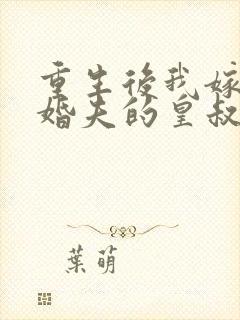 重生後我嫁
婚夫的皇叔
葉萌